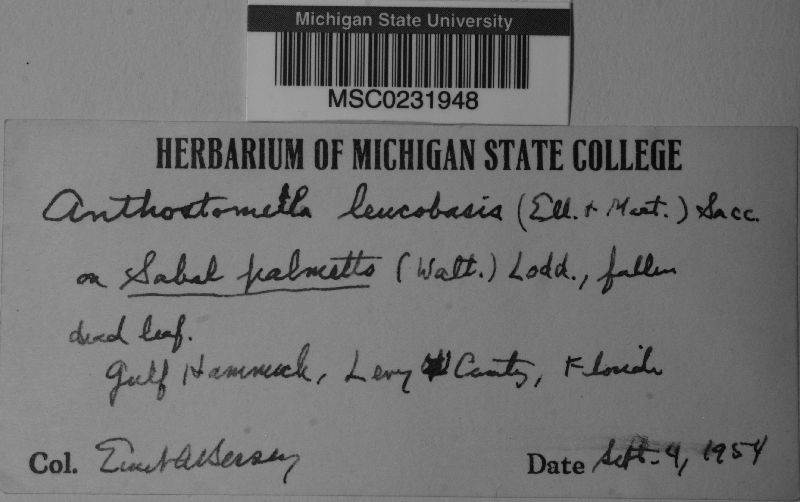 Michigan State University
MSC0231948
HERBARIUM OF MICHIGAN STATE COLLEGE
Anthostomella leucobasis (Ell. & Mart.) Sacc.
on Sabal palmetto (Walt.) Lodd., fallen
dead leaf.
Gulf Hammock, Levy County, Florida
Col.
Date Sept. 4, 1954